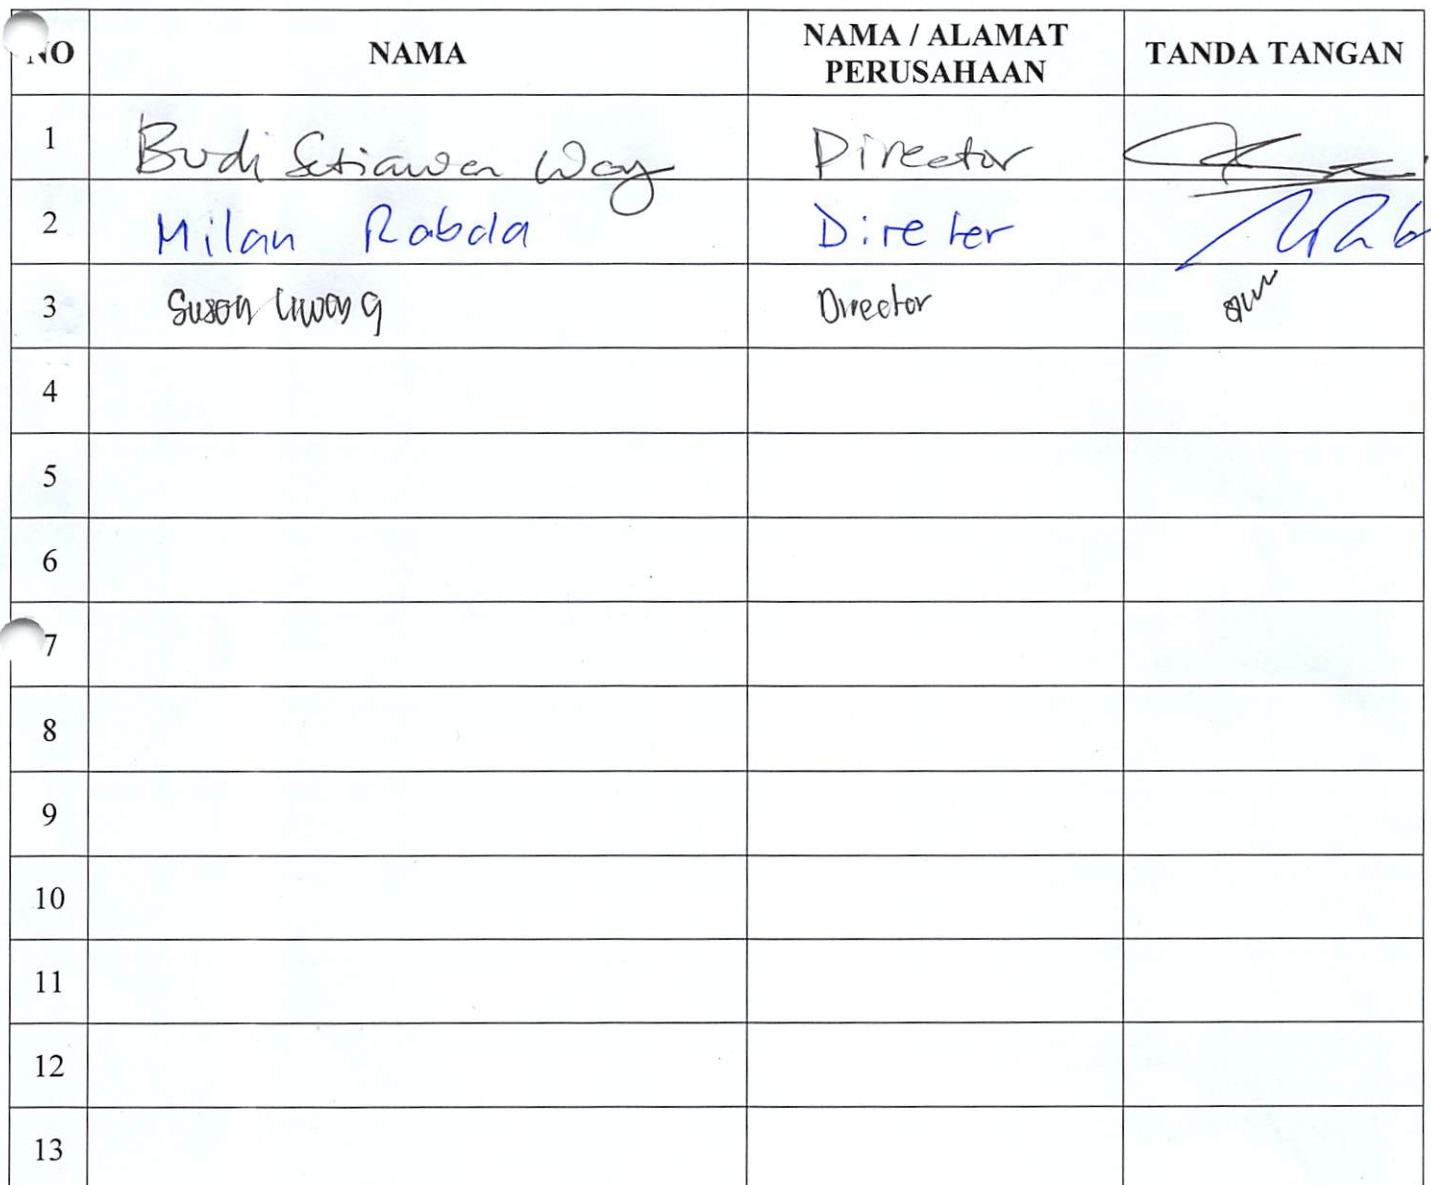 NO NAMA NAMA / ALAMAT PERUSAHAAN TANDA TANGAN
1 Budi Setiawan Director
2 Milan Rabada Direter
3 Susan Director
4
5
6
7
8
9
10
11
12
13